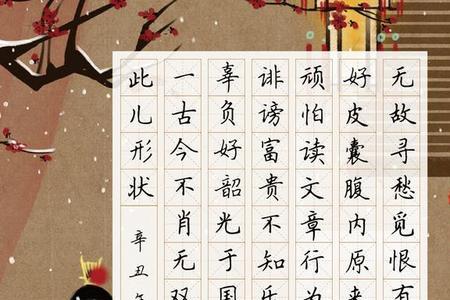 无故寻愁觅恨有
好皮囊腹内原来
顽怕读文章行为
诽谤富贵不知乐
辜负好韶光于国
一古今不肖无双
此儿形状
辛丑年